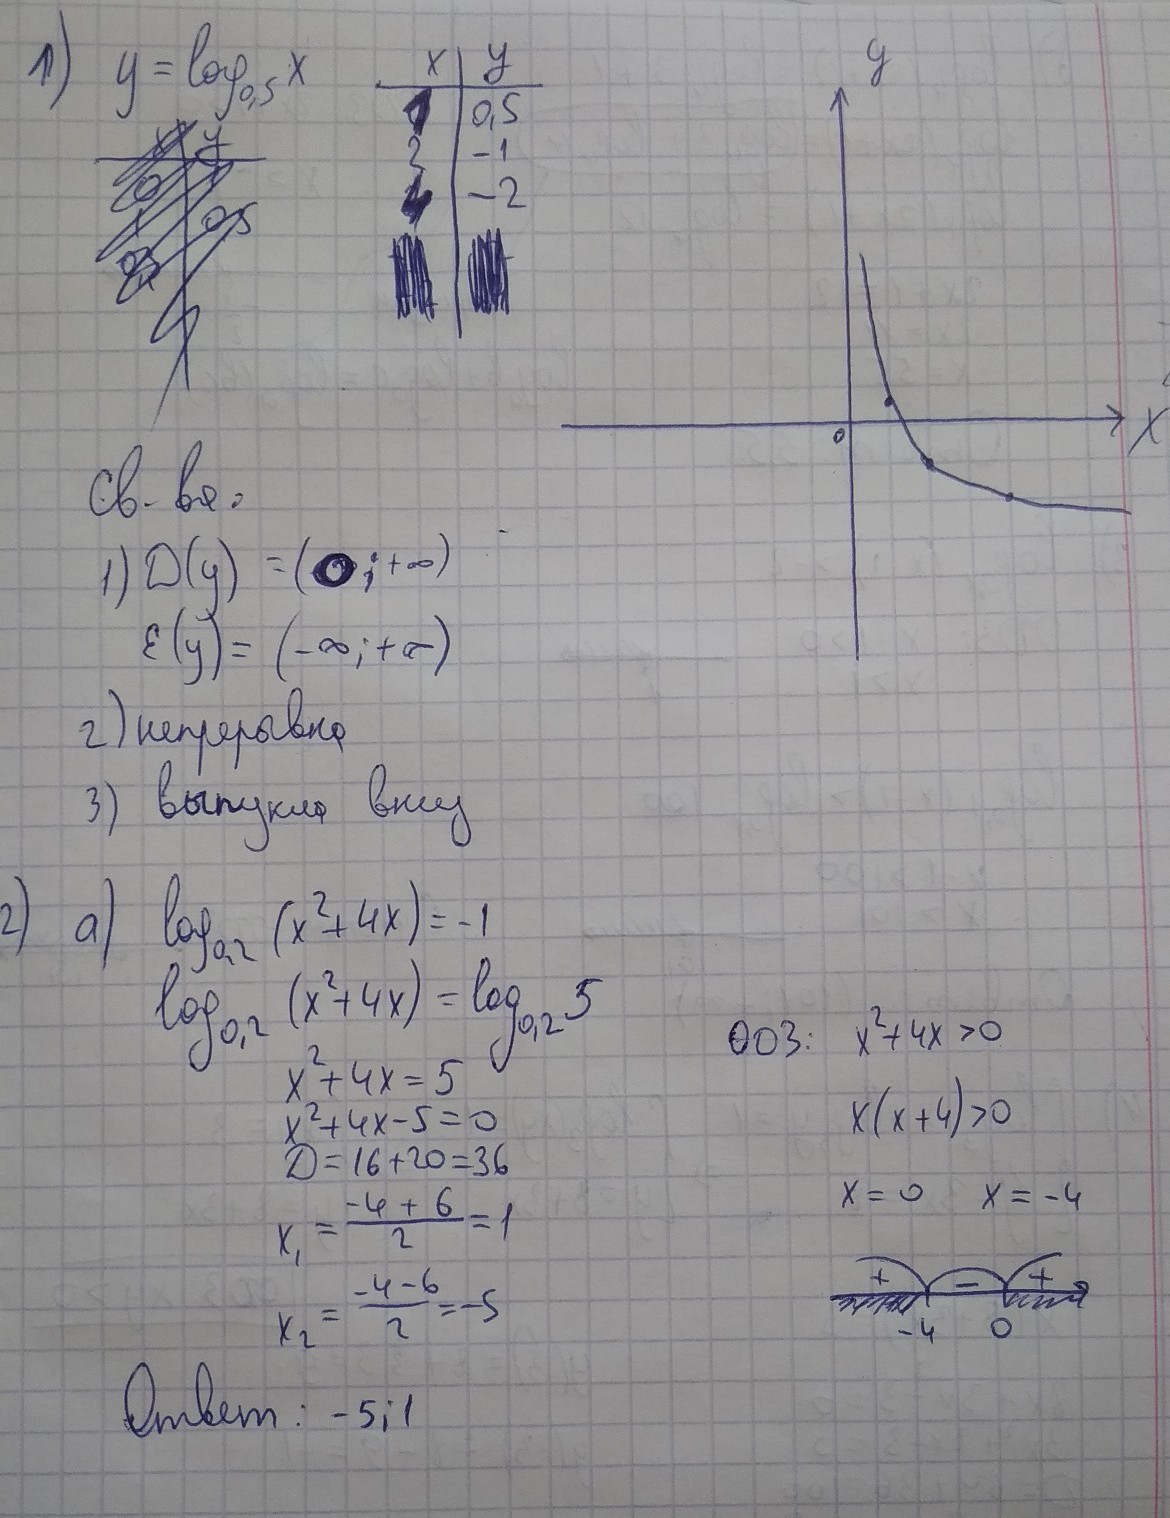 1) y = log₀,₅ x
x | y
1 | 0,5
2 | -1
4 | -2
y
0
x
Св-ва:
1) D(y) = (0; +∞)
E(y) = (-∞; +∞)
2) непрерывна
3) выпукла вниз
2) а) log₀,₂ (x² + 4x) = -1
log₀,₂ (x² + 4x) = log₀,₂ 5
x² + 4x = 5
x² + 4x - 5 = 0
D = 16 + 20 = 36
x₁ = (-4 + 6)/2 = 1
x₂ = (-4 - 6)/2 = -5
ООЗ: x² + 4x > 0
x(x + 4) > 0
x = 0 x = -4
+ - +
-4 0
Ответ: -5; 1